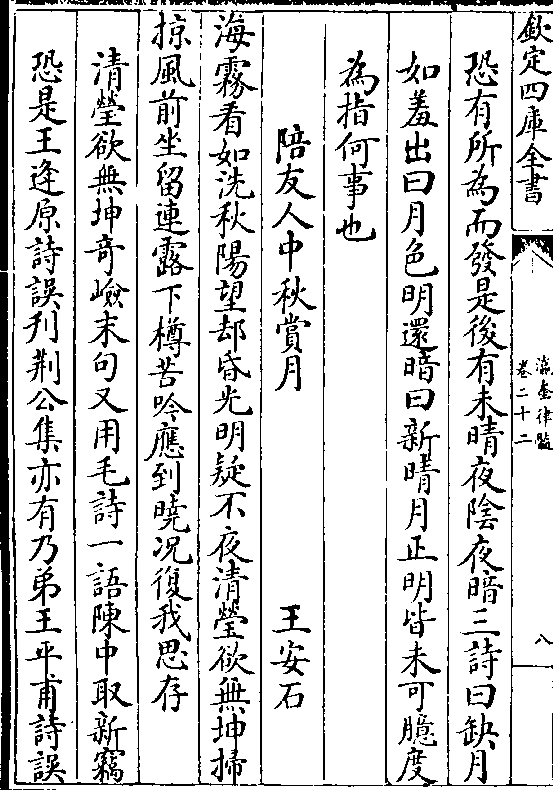 欽定四庫全書
瀛奎律髓
卷二十二
八
恐有所為而發是後有未晴夜陰夜暗三詩曰缺月
如羞出曰月色明還暗曰新晴月正明皆未可臆度
為指何事也
陪友人中秋賞月 王安石
海霧看如洗秋陽望却昏光明疑不夜清瑩欲無坤掃
掠風前坐留連露下樽苦吟應到曉况復我思存
清瑩欲無坤竒嶮末句又用毛詩一語陳中取新竊
恐是王逄原詩誤刋荆公集亦有乃弟王平甫詩誤